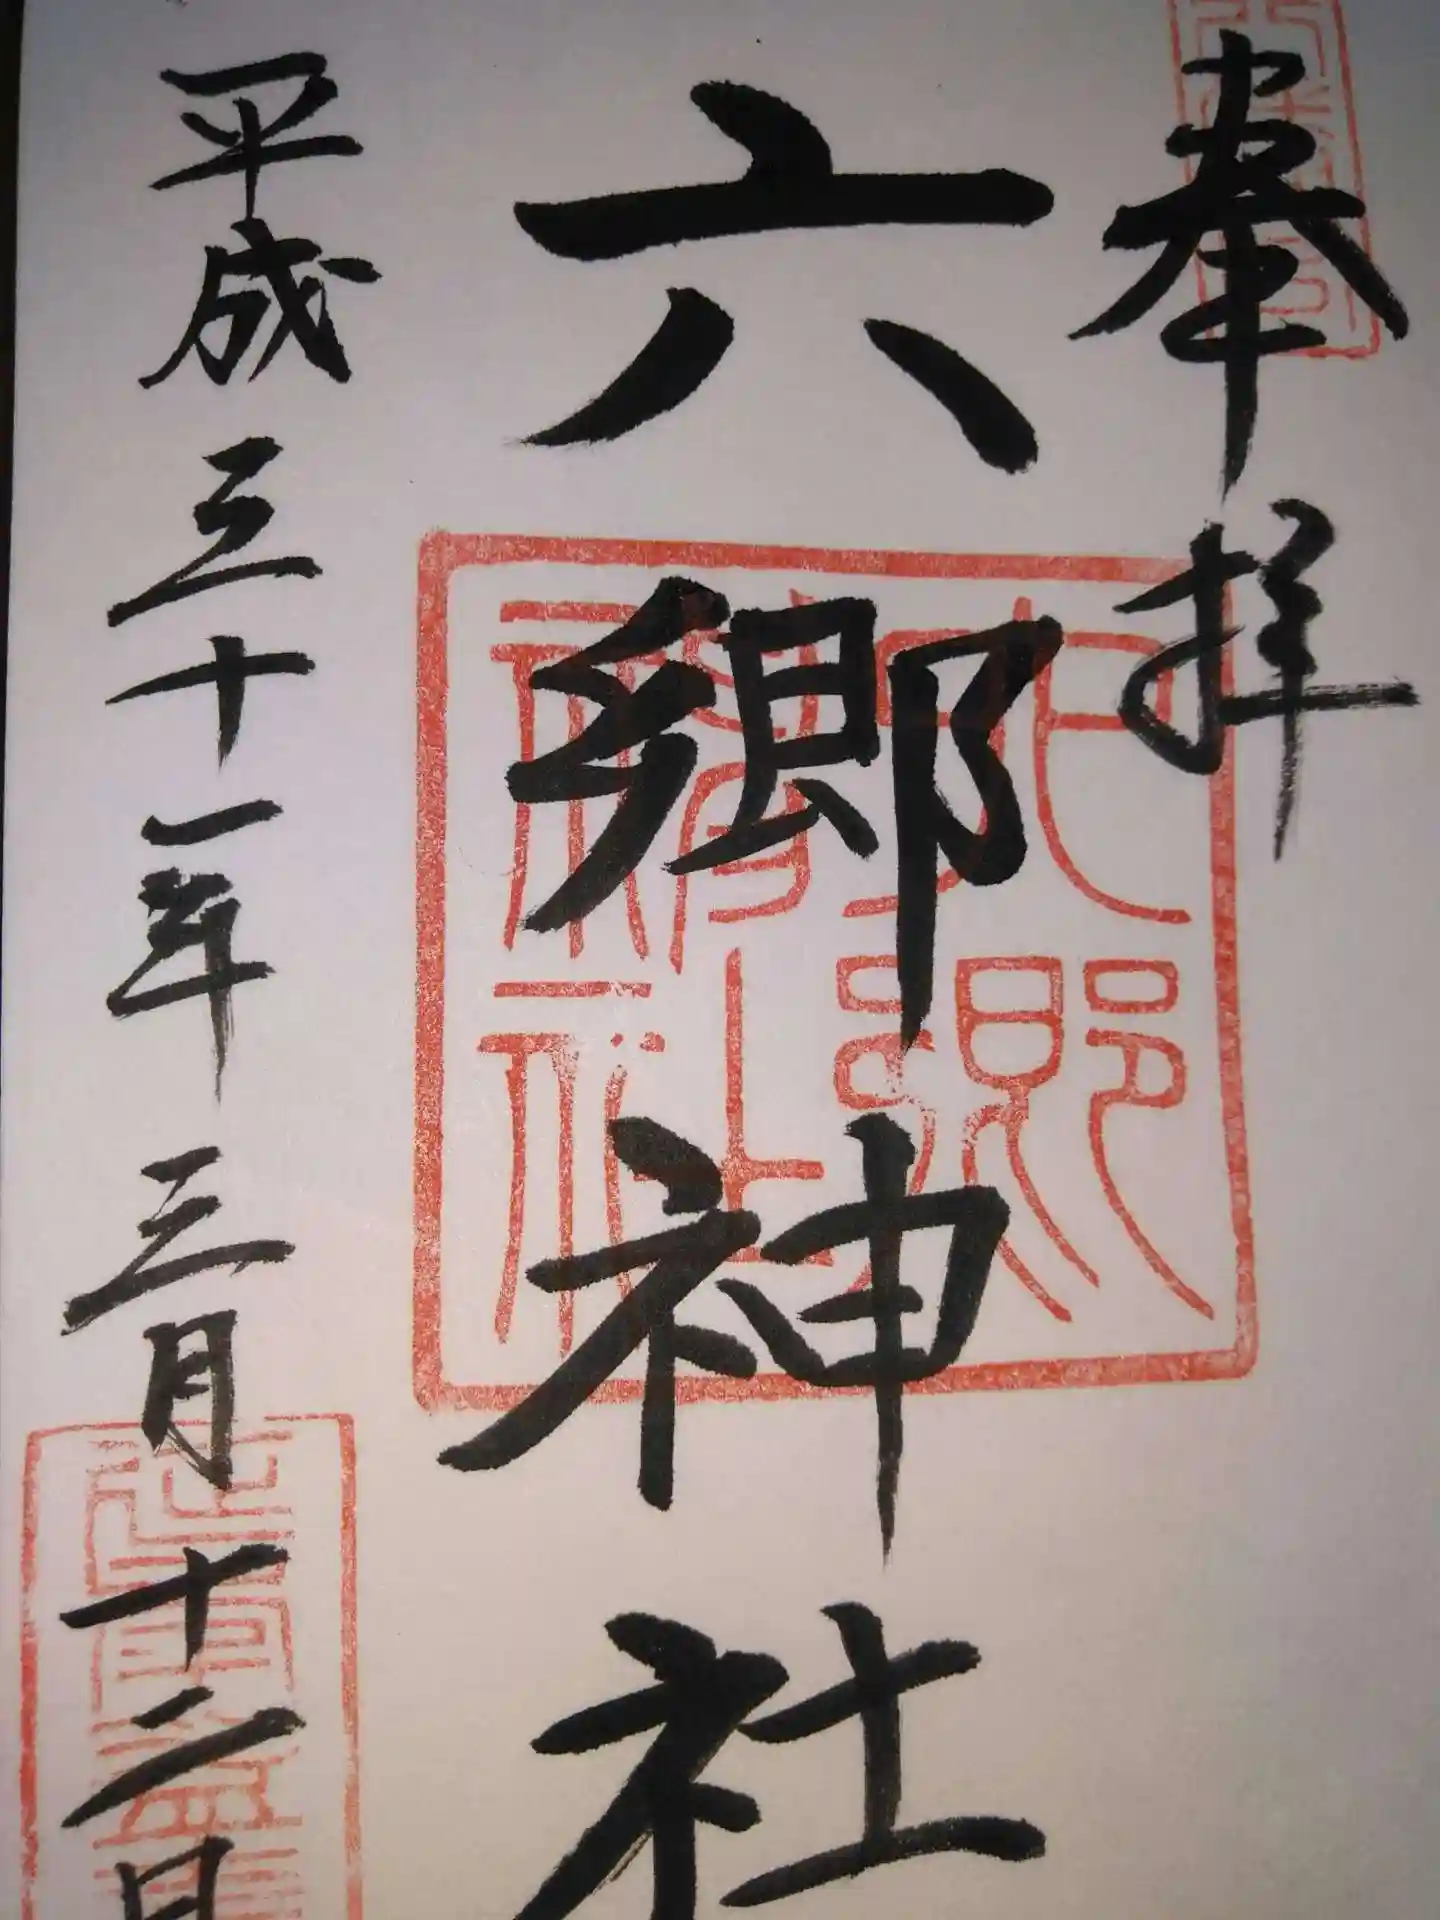 奉拝
六郷神社
平成三十一年三月十二日
六郷神社